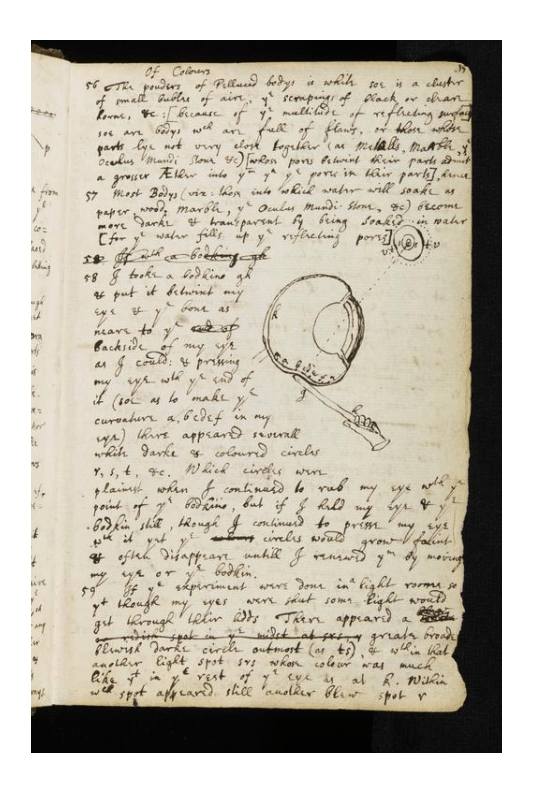 Of Colours
56 The pouders of Pellucid bodys is white soe is a cluster
of small bubles of aire, yᵉ scrapings of black or cleare
horne, &c: [because of yᵉ multitude of reflecting surfaces]
soe are bodys wᶜʰ are full of flaws, or those whose
parts lye not very close together (as Metalls, Marble, yᵉ
Oculus Mundi Stone &c) [whose pores betwixt their parts admit
a grosser Æther into yᵐ yⁿ yᵉ pores in their parts], hence
57 Most Bodys (viz: those into which water will soake as
paper, wood, marble, yᵉ Oculus Mundi Stone, &c) become
more darke & transparent by being soaked in water
[for yᵉ water fills up yᵉ reflecting pores]
58 If wᵗʰ a bodking gh
58 I tooke a bodkine gh
& put it betwixt my
eye & yᵉ bone as
neare to yᵉ end of
backside of my eye
as I could: & pressing
my eye wᵗʰ yᵉ end of
it (soe as to make yᵉ
curvature a, bcdef in my
eye) there appeared severall
white darke & coloured circles
r, s, t, &c. Which circles were
plainest when I continued to rub my eye wᵗʰ yᵉ
point of yᵉ bodkine, but if I held my eye & yᵉ
bodkin still, though I continued to presse my eye
wᵗʰ it yet yᵉ circles would grow faint
& often disappeare untill I renewed yᵐ by moving
my eye or yᵉ bodkin.
59 If yᵉ experiment were done in a light roome so
yᵗ though my eyes were shut some light would
get through their lidds There appeared a
or redish spot in yᵉ midst at srs, greate broade
blewish darke circle outmost (as ts), & wᵗʰin that
another light spot srs whose colour was much
like yᵗ in yᵉ rest of yᵉ eye as at k. Within
wᶜʰ spot appeared still another blew spot r